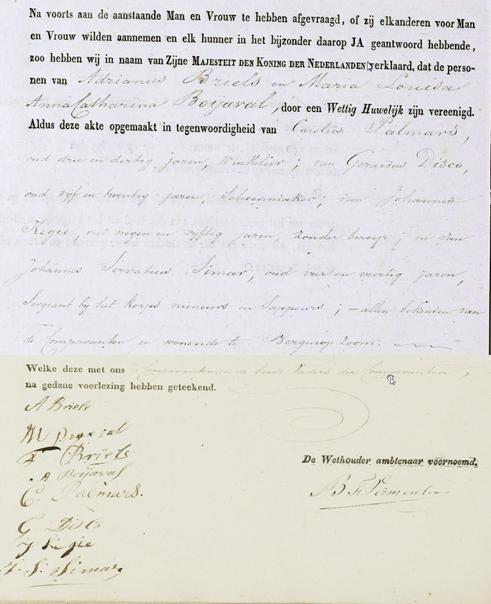 Na voorts aan de aanstaande Man en Vrouw te hebben afgevraagd, of zij elkanderen voor Man
en Vrouw wilden aannemen en elk hunner in het bijzonder daarop JA geantwoord hebbende,
zoo hebben wij in naam van Zijne MAJESTEIT DEN KONING DER NEDERLANDEN verklaard, dat de perso-
nen van Adrianus Briels en Maria Louisa
Anna Catharina Boijaval, door een Wettig Huwelijk zijn vereenigd.
Aldus deze akte opgemaakt in tegenwoordigheid van Carolus Palmars,
oud drie en dertig jaren, Winkelier; van Gerardus Disco,
oud vijf en twintig jaren, Schoenmaker; van Johannes
Regie, oud negen en vijftig jaren, zonder beroep; en van
Johannes Servatius Simar, oud vier en veertig jaren,
Sergeant bij het Korps mineurs en Sappeurs; – allen bekenden van
de Comparanten en wonende te Bergen op Zoom. –
Welke deze met ons de Comparanten en de beide Vaders der Comparanten,
na gedane voorlezing hebben geteekend.
A Briels
M Boyaval
F Briels
A Boijaval
C. Palmars.
De Wethouder ambtenaar voornoemd,
Vermeulen
G Disco
J Regie
J. S. Simar